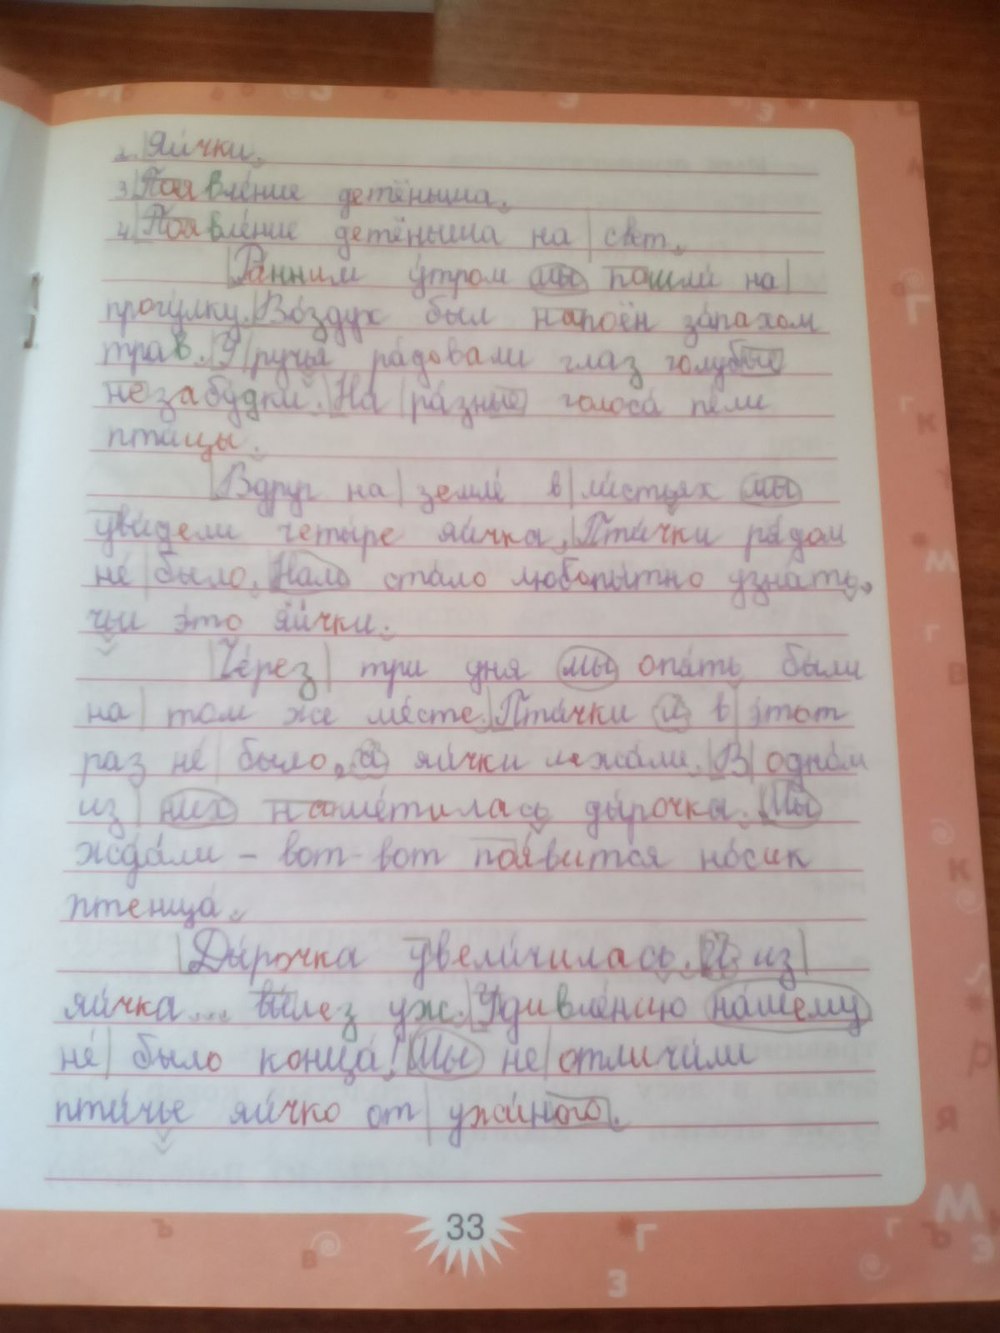 2. Яйчки.
3. Появле́ние детёныша.
4. Появле́ние детёныша на свет.
Ра́нним у́тром мы пошли́ на
прогу́лку. Во́здух был напоён за́пахом
трав. У ручья́ ра́довали глаз голубы́е
незабу́дки. На ра́зные голоса́ пе́ли
пти́цы.
Вдруг на земле́ в ли́стьях мы
уви́дели четы́ре яи́чка. Пти́чки ря́дом
не́ было. Нам ста́ло любопы́тно узна́ть,
чьи э́то яи́чки.
Че́рез три дня мы опя́ть бы́ли
на том же ме́сте. Пти́чки и в э́тот
раз не́ было, а яи́чки лежа́ли. В одно́м
из них наме́тилась ды́рочка. Мы
жда́ли - вот-вот поя́вится но́сик
птенца́.
Ды́рочка увели́чилась. И из
яи́чка... вы́лез уж. Удивле́нию на́шему
не́ было конца́! Мы не отличи́ли
пти́чье яи́чко от ужи́ного.
33